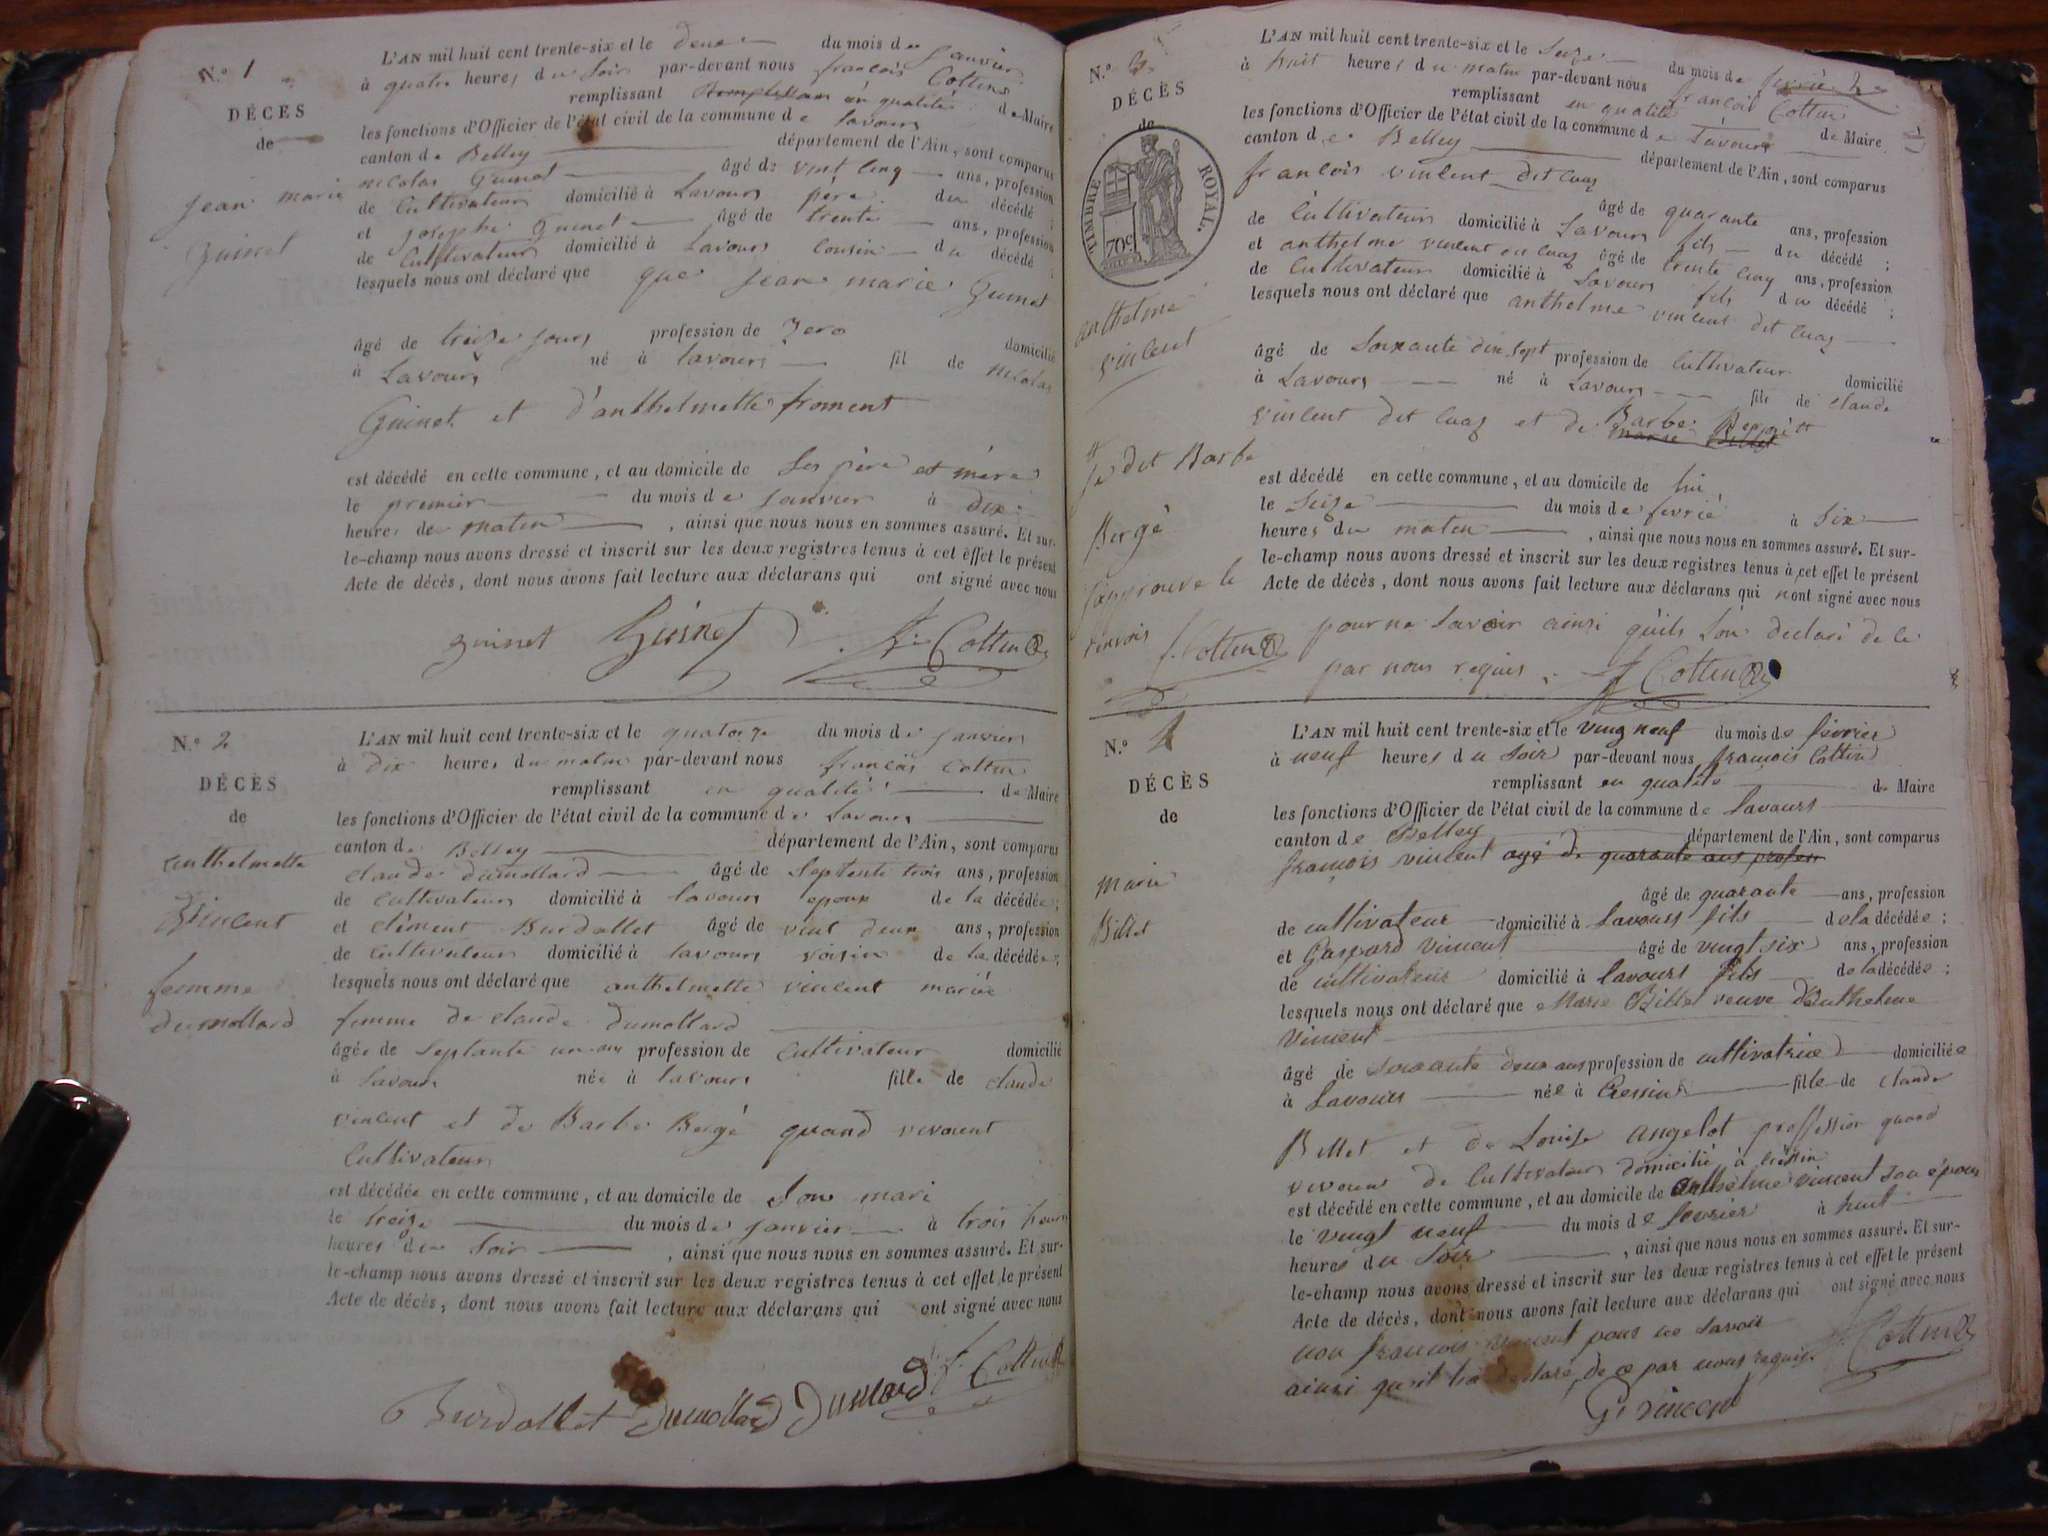 N.° 1
DÉCÈS
de
jean marie
guinet
L'AN mil huit cent trente-six et le deux du mois de janvier
à quatre heures du soir par-devant nous françois Cottin
remplissant en qualité de Maire
les fonctions d'Officier de l'état civil de la commune de lavours
canton de Belley département de l'Ain, sont comparus
nicolas guinet âgé de vint cinq ans, profession
de Cultivateur domicilié à Lavours père du décédé ;
et josephe guinet âgé de trente ans, profession
de Cultivateur domicilié à Lavours cousin du décédé ;
lesquels nous ont déclaré que que jean marie guinet
âgé de treize jours profession de zero domicilié
à Lavours né à lavours fil de nicolas
Guinet et d'anthelmette froment
est décédé en cette commune, et au domicile de ses père et mère
le premier du mois de janvier à dix
heures de matin , ainsi que nous nous en sommes assuré. Et sur-
le-champ nous avons dressé et inscrit sur les deux registres tenus à cet effet le présent
Acte de décès, dont nous avons fait lecture aux déclarans qui ont signé avec nous
guinet Guinet f. Cottin
N.° 2
DÉCÈS
de
anthelmette
Vincent
femme
dumollard
L'AN mil huit cent trente-six et le quatorze du mois de janvier
à dix heures du matin par-devant nous françois Cottin
remplissant en qualité de Maire
les fonctions d'Officier de l'état civil de la commune de Lavours
canton de Belley département de l'Ain, sont comparus
claude dumollard âgé de septente trois ans, profession
de Cultivateur domicilié à lavours epoux de la décédée ;
et clément Burdallet âgé de vint deux ans, profession
de Cultivateur domicilié à lavours voisin de la décédée ;
lesquels nous ont déclaré que anthelmette vincent mariée
femme de claude dumollard
âgée de septante un ans profession de Cultivateur domicilié
à Lavours née à lavours fille de claude
vincent et de Barbe Bergé quand vivoient
Cultivateur
est décédée en cette commune, et au domicile de son mari
le treize du mois de janvier à trois heures
heures du soir , ainsi que nous nous en sommes assuré. Et sur-
le-champ nous avons dressé et inscrit sur les deux registres tenus à cet effet le présent
Acte de décès, dont nous avons fait lecture aux déclarans qui ont signé avec nous
Burdallet Dumollard Dumollard f. Cottin
N.° 3
DÉCÈS
de
TIMBRE ROYAL.
70c
anthelme
vincent
je dit Barbe
Bergé
japprouve le
renvois
f. Cottin
L'AN mil huit cent trente-six et le seize du mois de fevrié
à huit heures du matin par-devant nous françois Cottin
remplissant en qualité de Maire
les fonctions d'Officier de l'état civil de la commune de Lavours
canton de Belley département de l'Ain, sont comparus
françois vincent dit cuaz
âgé de quarante ans, profession
de Cultivateur domicilié à Lavours fils du décédé ;
et anthelme vincent cuaz âgé de trente cinq ans, profession
de Cultivateur domicilié à Lavours fils du décédé ;
lesquels nous ont déclaré que anthelme vincent dit cuaz
âgé de soixante dix sept profession de Cultivateur domicilié
à Lavours né à Lavours fils de claude
vincent dit cuaz et de Barbe
marie Billet
est décédé en cette commune, et au domicile de lui
le seize du mois de fevrié à six
heures du matin , ainsi que nous nous en sommes assuré. Et sur-
le-champ nous avons dressé et inscrit sur les deux registres tenus à cet effet le présent
Acte de décès, dont nous avons fait lecture aux déclarans qui nont signé avec nous
pour ne savoir ainsi qu'ils l'on declaré de ce
par nous requis. f Cottin
N.° 4
DÉCÈS
de
Marie
Billet
L'AN mil huit cent trente-six et le vingt neuf du mois de février
à neuf heures du soir par-devant nous françois Cottin
remplissant en qualité de Maire
les fonctions d'Officier de l'état civil de la commune de Lavours
canton de Belley département de l'Ain, sont comparus
françois vincent agé de quarante ans profession
âgé de quarante ans, profession
de cultivateur domicilié à Lavours fils de la décédée ;
et Gaspard vincent âgé de vingt six ans, profession
de cultivateur domicilié à lavours fils de la décédée ;
lesquels nous ont déclaré que Marie Billet veuve d'Anthelme
Vincent
âgé de soixante deux ans profession de cultivatrice domiciliée
à Lavours née à Cressin fille de claude
Billet et de Louise angelot proffession quand
vivoient de Cultivateur domicilié à Cressin
est décédé en cette commune, et au domicile de Anthelme vincent son époux
le vingt neuf du mois de fevrier à huit
heures du soir , ainsi que nous nous en sommes assuré. Et sur-
le-champ nous avons dressé et inscrit sur les deux registres tenus à cet effet le présent
Acte de décès, dont nous avons fait lecture aux déclarans qui ont signé avec nous
non françois vincent pour ne savoir
ainsi qu'il l'a déclaré, de ce par nous requis. f. Cottin
G. vincent